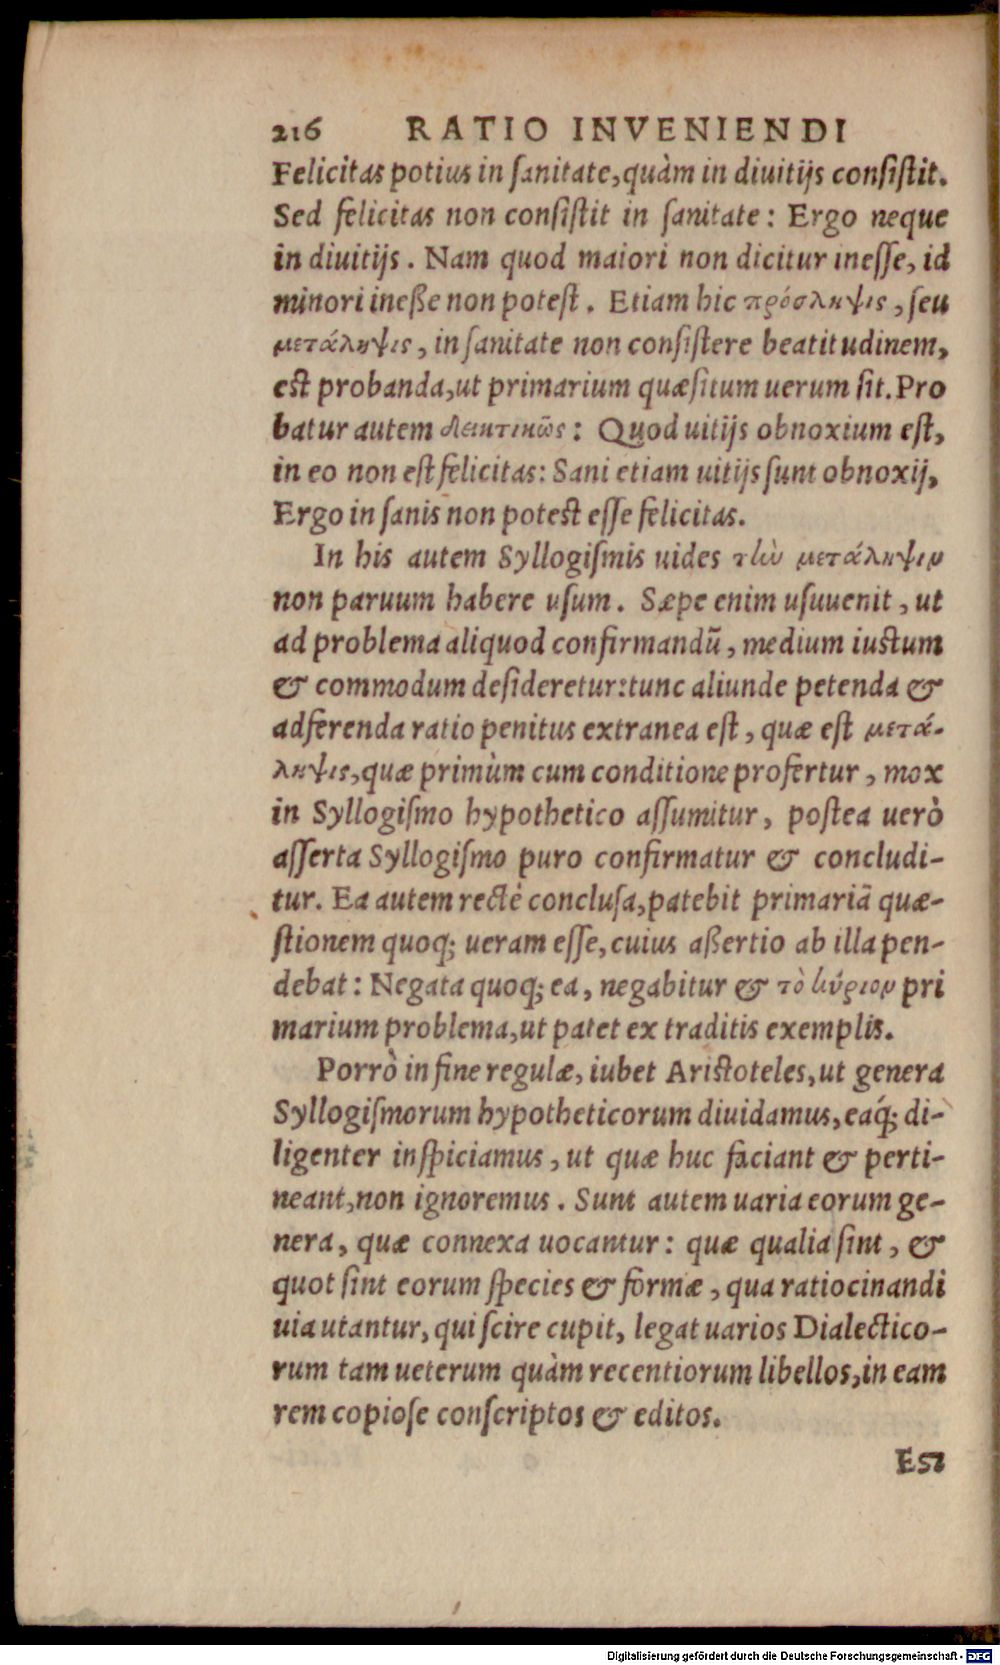 216 RATIO INVENIENDI
Felicitas potius in sanitate, quàm in diuitijs consistit.
Sed felicitas non consistit in sanitate: Ergo neque
in diuitijs. Nam quod maiori non dicitur inesse, id
minori ineße non potest. Etiam hic πρόσληψις, seu
μετάληψις, in sanitate non consistere beatitudinem,
est probanda, ut primarium quæsitum uerum sit. Pro
batur autem δεικτικῶς: Quod uitijs obnoxium est,
in eo non est felicitas: Sani etiam uitijs sunt obnoxij,
Ergo in sanis non potest esse felicitas.
In his autem Syllogismis uides τὴν μετάληψιν
non paruum habere usum. Sæpe enim usuuenit, ut
ad problema aliquod confirmandũ, medium iustum
& commodum desideretur: tunc aliunde petenda &
adferenda ratio penitus extranea est, quæ est μετά-
ληψις, quæ primùm cum conditione profertur, mox
in Syllogismo hypothetico assumitur, postea uerò
asserta Syllogismo puro confirmatur & concludi-
tur. Ea autem rectè conclusa, patebit primariã quæ-
stionem quoq; ueram esse, cuius aßertio ab illa pen-
debat: Negata quoq; ea, negabitur & τὸ κύριον pri
marium problema, ut patet ex traditis exemplis.
Porrò in fine regulæ, iubet Aristoteles, ut genera
Syllogismorum hypotheticorum diuidamus, eaq́; di-
ligenter inspiciamus, ut quæ huc faciant & perti-
neant, non ignoremus. Sunt autem uaria eorum ge-
nera, quæ connexa uocantur: quæ qualia sint, &
quot sint eorum species & formæ, qua ratiocinandi
uia utantur, qui scire cupit, legat uarios Dialectico-
rum tam ueterum quàm recentiorum libellos, in eam
rem copiose conscriptos & editos.
Est
Digitalisierung gefördert durch die Deutsche Forschungsgemeinschaft - DFG